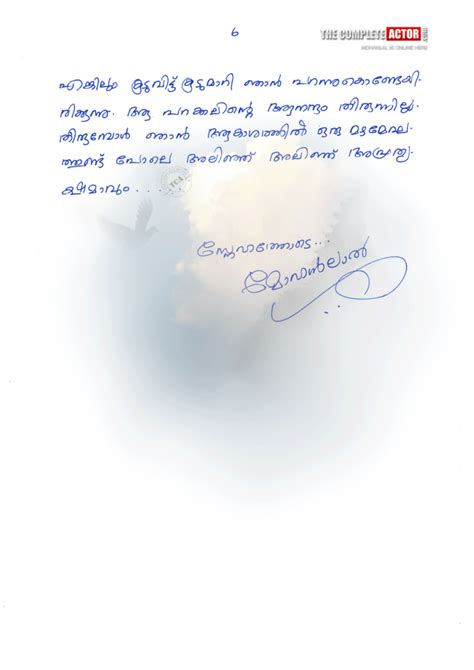 6
THE COMPLETE ACTOR
MOHANLAL IS ONLINE HERE
എങ്കിലും കൂടുവിട്ട് കൂടുമാറി ഞാൻ പറന്നുകൊണ്ടേയി-
രിക്കുന്നു. ആ പറക്കലിന്റെ ആനന്ദം തീരുന്നില്ല.
തീരുമ്പോൾ ഞാൻ ആകാശത്തിൽ ഒരു മഴമേഘ-
ത്തുണ്ട് പോലെ അലിഞ്ഞ് അലിഞ്ഞ് അപ്രത്യ-
ക്ഷമാവും . . . . .
TCA
സ്നേഹത്തോടെ...
മോഹൻലാൽ